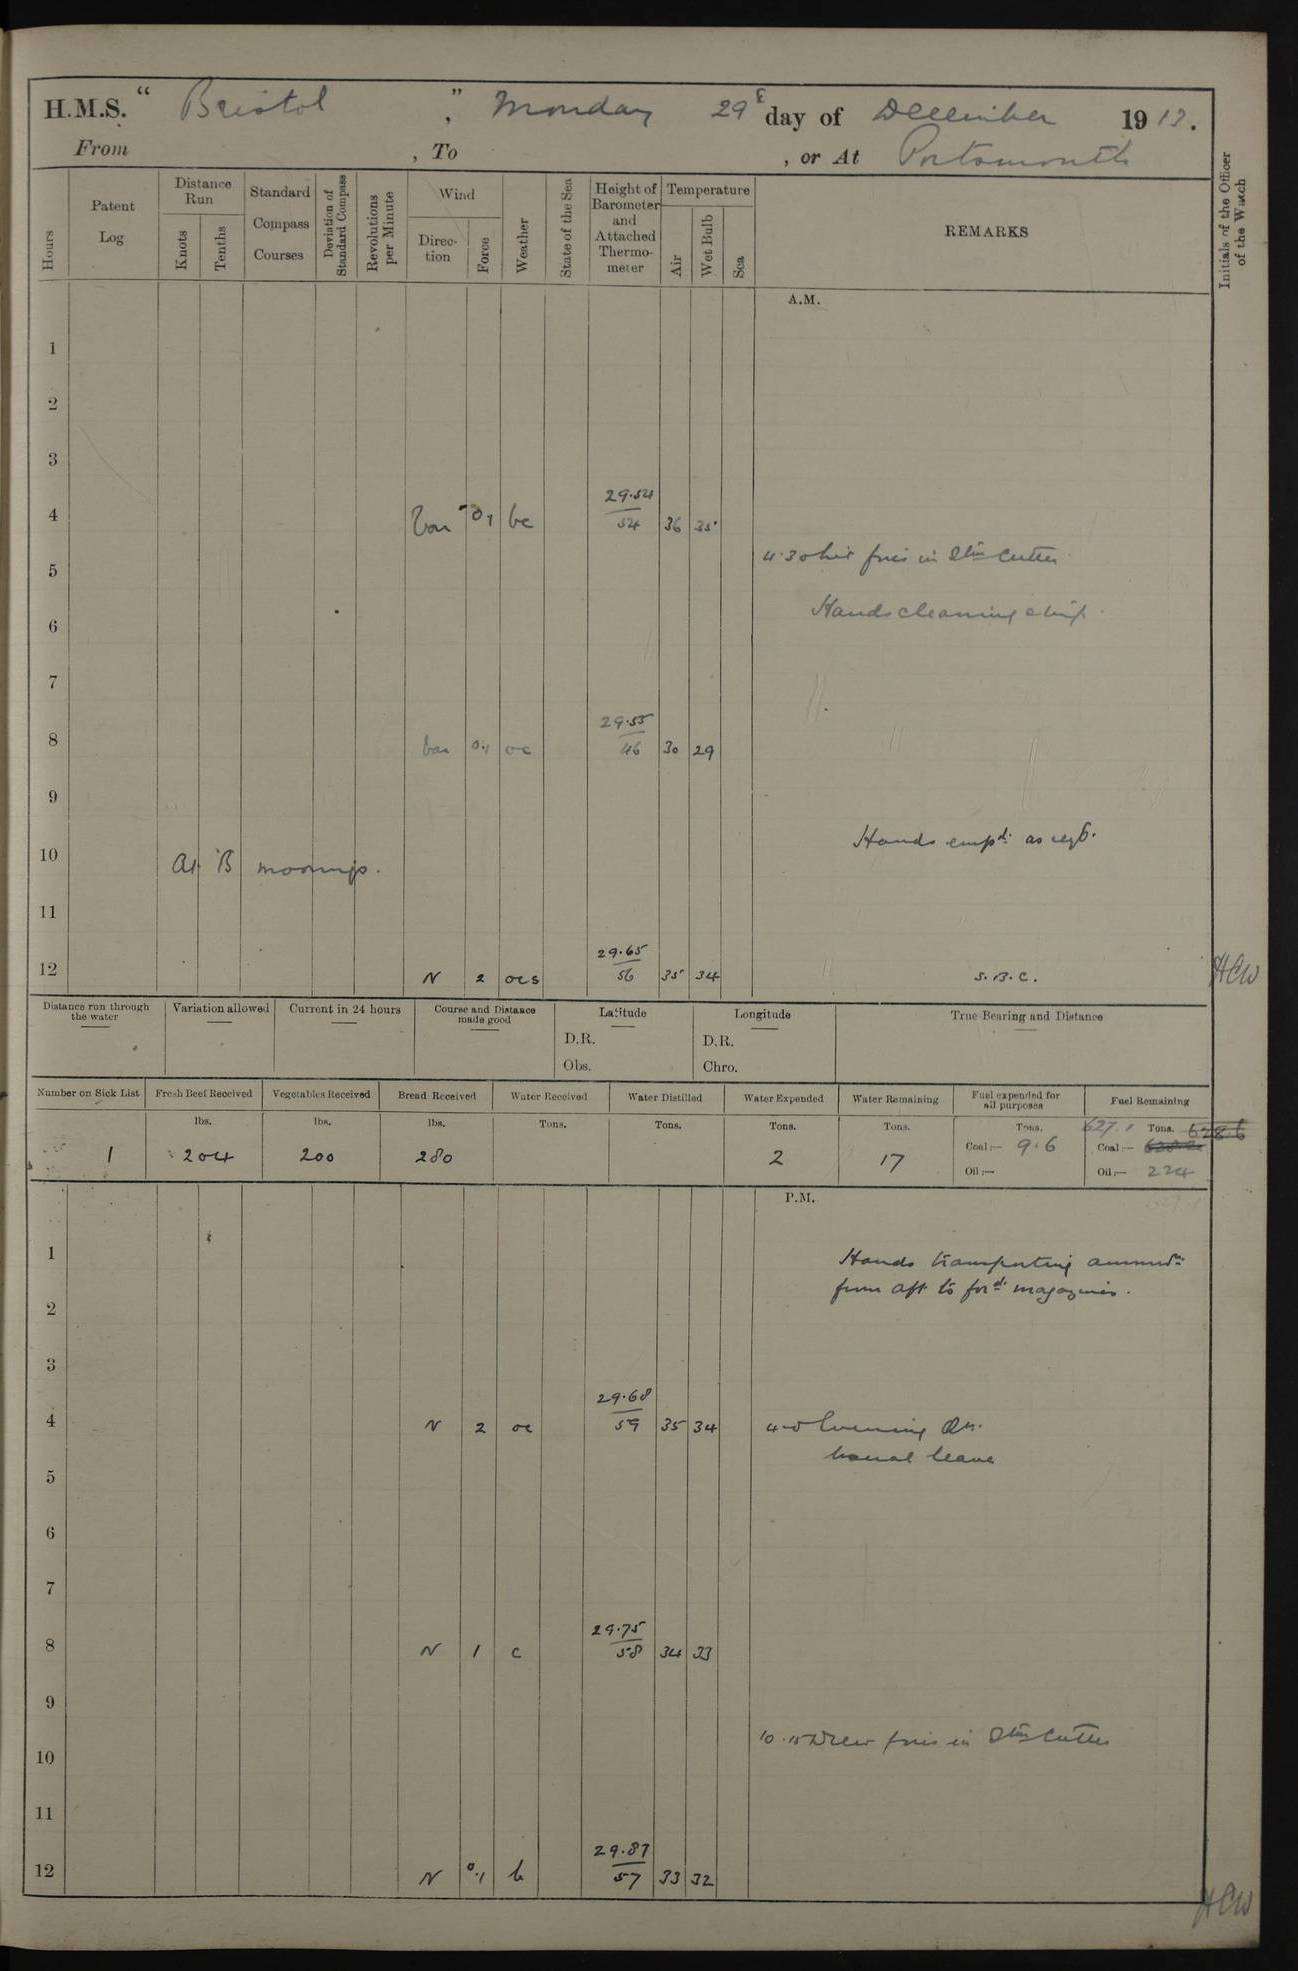 H.M.S. “ Bristol ”, Monday 29th day of December 1913.
From , To , or At Portsmouth
Hours
Patent Log
Distance Run
Knots
Tenths
Standard Compass Courses
Deviation of Standard Compass
Revolutions per Minute
Wind
Direction
Force
Weather
State of the Sea
Height of Barometer and Attached Thermometer
Temperature
Air
Wet Bulb
Sea
REMARKS
Initials of the Officer of the Watch
A.M.
1
2
3
4 Var 0.1 bc 29.54 54 36 35
4.30 Lit fires in Stm Cutter
5
Hands cleaning ship.
6
7
8 Var 0.1 oc 29.55 46 30 29
9
Hands empd. as reqd.
10 At B moorings.
11
12 N 2 ocs 29.65 56 35 34 S.B.C. HCW
Distance run through the water
Variation allowed
Current in 24 hours
Course and Distance made good
Latitude
D.R.
Obs.
Longitude
D.R.
Chro.
True Bearing and Distance
Number on Sick List 1
Fresh Beef Received lbs. 204
Vegetables Received lbs. 200
Bread Received lbs. 280
Water Received Tons.
Water Distilled Tons.
Water Expended Tons. 2
Water Remaining Tons. 17
Fuel expended for all purposes Tons.
Coal:— 9.6
Oil:—
Fuel Remaining
627.1 Tons. 628.6
Coal:—
Oil:— 224
P.M.
1 Hands transporting ammun:
from aft to ford. magazines.
2
3
4 N 2 oc 29.68 59 35 34 4-0 Evening Qrs.
Usual leave
5
6
7
8 N 1 c 29.75 58 34 33
9
10.15 Drew fires in Stm Cutter
10
11
12 N 0.1 b 29.87 57 33 32
HCW